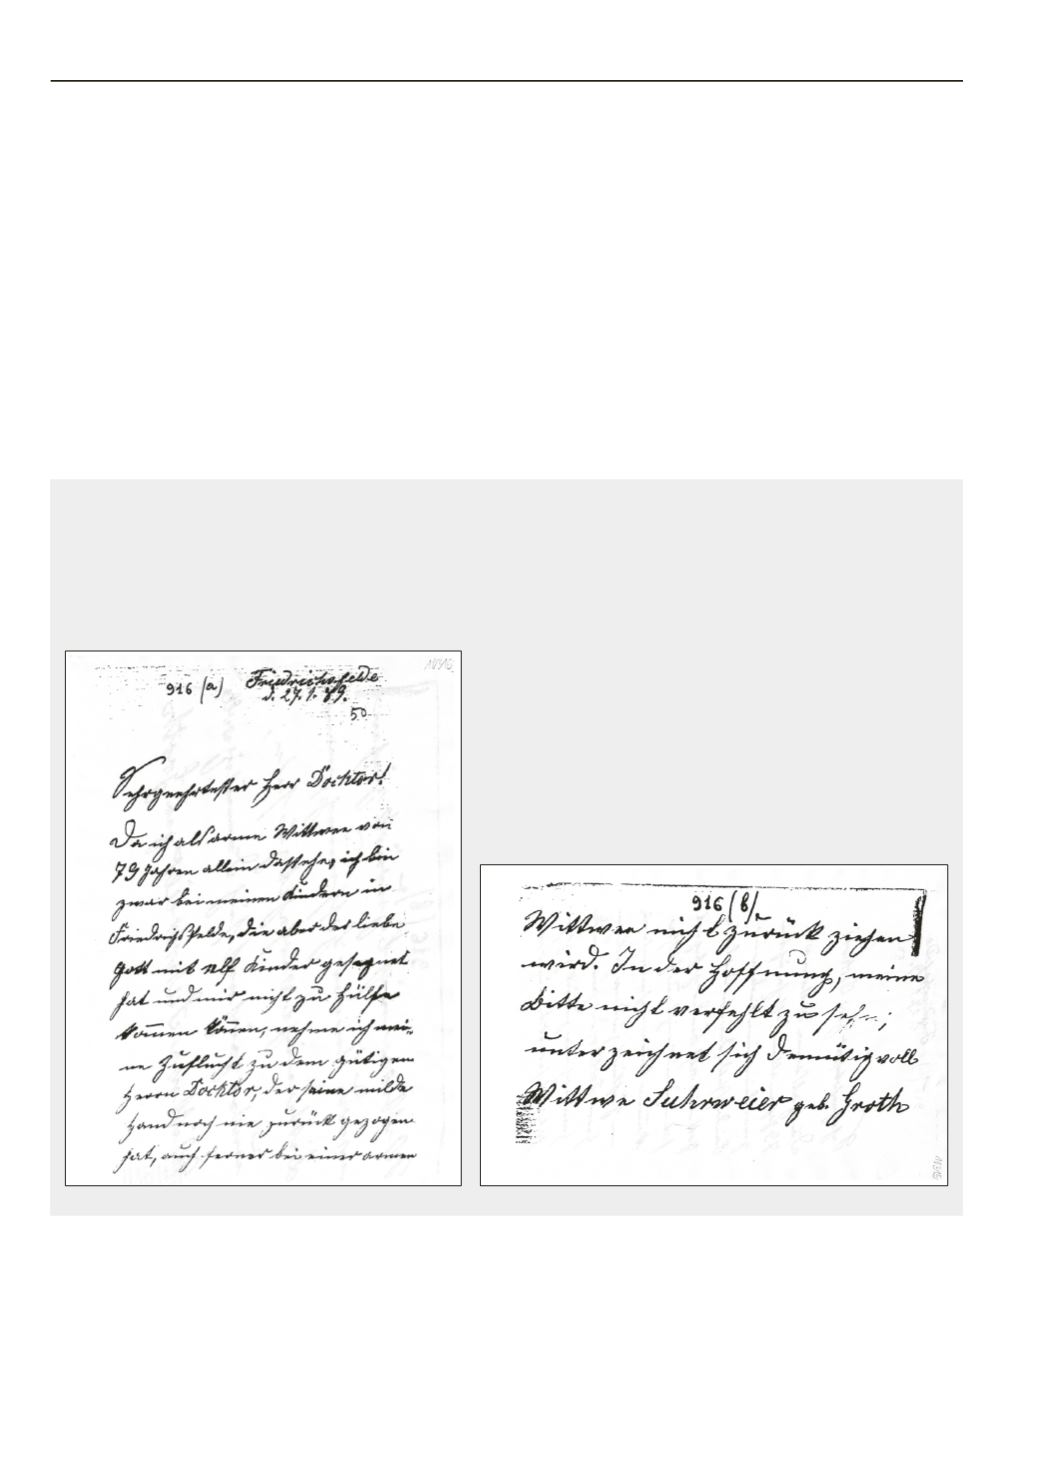 11916
916 (a) Friedrichsfelde
d. 27. 1. 89.
50
Sehrgeehrtester Herr Dochtor!
Da ich als arme Wittwee von
79 Jahren allein dastehe, ich bin
zwar bei meinen Kindern in
Friedrichsfelde, die aber der liebe
Gott mit elf Kinder gesegnet
hat und mir nicht zu Hülfe
kom̅en kön̅en, nehme ich mei-
ne Zuflucht zu dem gütigen
Herrn Dochtor, der seine milde
Hand noch nie zurück gezogen
hat, auch ferner bei einer armen
916 (b)
Wittwee nicht zurück ziehen
wird. In der Hoffnung, meine
Bitte nicht verfehlt zu sehn;
unterzeichnet sich demütig voll
Wittwe Suhrweier geb. Groth